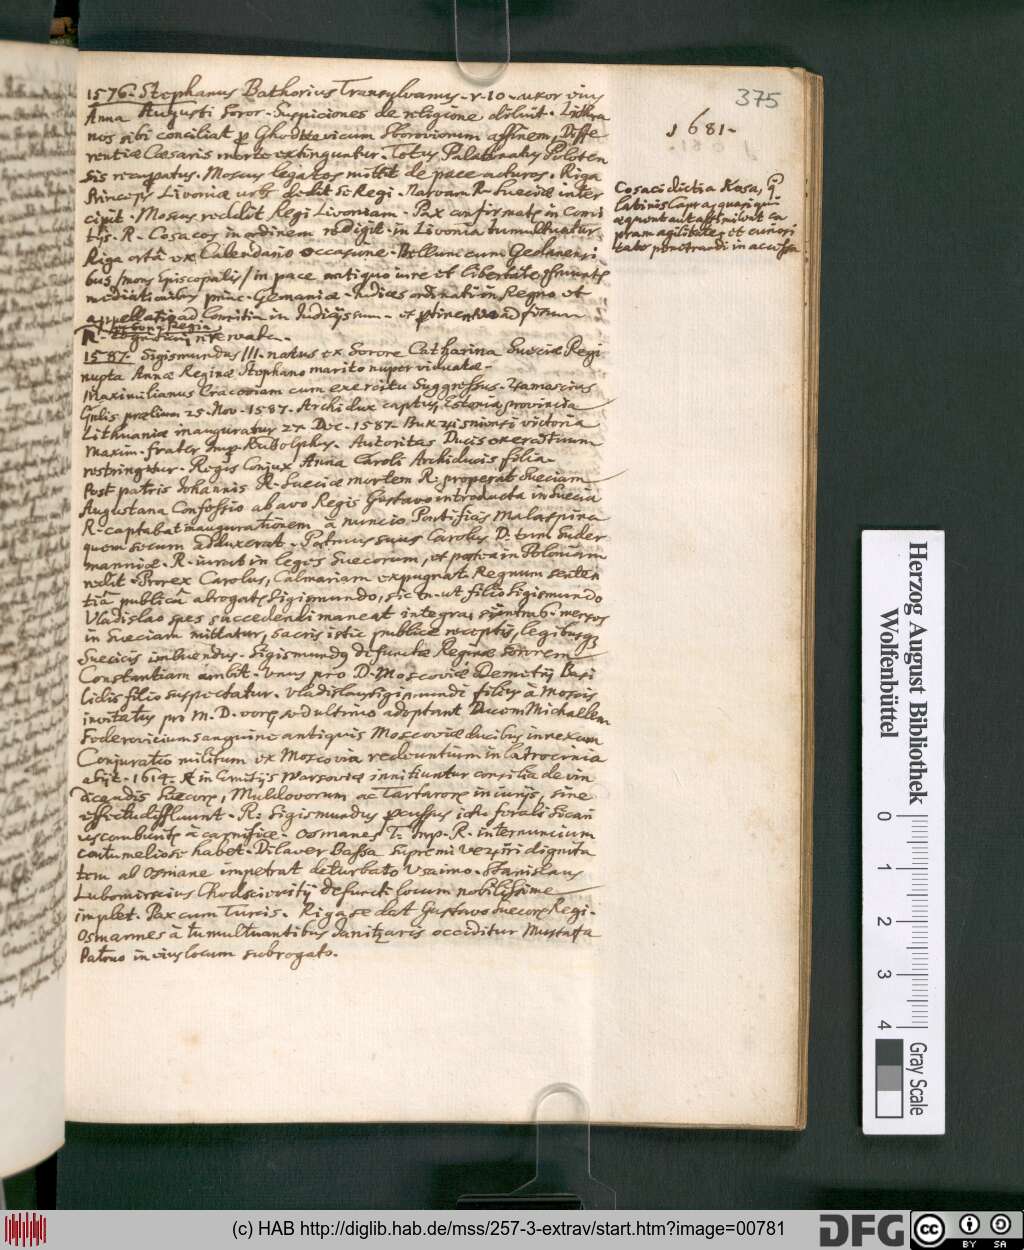 375
1681.
1576. Stephanus Bathorius Transylvanus. r. 10. uxor eius
Anna Augusti soror. Suspiciones de religione diluit.
nos sibi conciliat Sboroviorum affinem, Diffe
rentiæ Cæsaris morte extinguuntur. Totus Palatinatus Poloten
sis recuperatus. Moscus legatos mittit de pace acturos. Riga
Princeps Livoniæ urbs dedit se Regi. Narvam R. Sueciæ inter
cipit. Moscus reddit Regi Livoniam. Pax confirmatur in Comi
tijs. R. Cosacos in ordinem redigit. in Livonia tumultuatur
Riga orta ex Calendario occasione. Bellum cum Gedanensi
bus in pace antiquo iure et libertate
mediationibus princ. Germaniæ. Iudices ordinati in Regno et
appellatio ad Comitia in Iudicijs sum. et
R. reservata.
1587. Sigismundus III. natus ex Sorore Catharina Sueciæ Regi
nupta Annæ Reginæ Stephano marito nuper viduatæ.
Maximilianus Cracoviam cum exercitu suggressus. Zamoscius
prælium 25. Nov. 1587. Archidux captus, Estonia provincia
Lithuaniæ inauguratur 27. Dec. 1587. victoria
Maxim. frater Imp. Rudolphus. Autoritas Ducis exercituum
restringitur. Regis Conjux Anna Caroli Archiducis filia.
Post patris Johannis R. Sueciæ mortem R. properat Sueciam
Augustana Confessio ab avo Regis Gustavo introducta in Suecia
R. captabat inaugurationem a nuncio Pontificis Malaspina
quem secum adduxerat. Patruus suus Carolus D. tum Suder
manniæ. R. iurat in leges Suecorum, et postea in Poloniam
redit. Prorex Carolus, Calmariam expugnat. Regnum senten
tiâ publicâ abrogatur Sigismundo, sic tn. ut filio Sigismundo
Vladislao spes succedendi maneat integra, si intra 6. menses
in Sueciam mittatur, sacris istic publice receptis, legibusque
Suecicis imbuendus. Sigismundus defunctæ Reginæ sororem
Constantiam ambit. Unus pro D. Moscoviæ Demetrij Basi
lidis filio suspectatur. Vladislaus Sigismundi filius à Moscis
invitatus pro M. D. sed ultimo adoptant Ducem Michaelem
Federovicium sanguine antiquis Moscoviæ ducibus innexum
Conjuratio militum ex Moscovia redeuntium in latrocinia
abijt. 1614. in Comitijs Warsoviæ innituntur consilia de vin
dicandis Suecorum, Moldovorum ac Tartarorum iniurijs, sine
effectu diffluunt. R. Sigismundus percussus ictu
à carnifice. Osmanes T. Imp. R. internuncium
contumeliose habet. Dilaver Bassa supremi Vezirii dignita
tem ab Osmane impetrat deturbato Usaimo. Stanislaus
Lubomirscius Chodscievitij defuncti locum nobilissime
implet. Pax cum Turcis. Riga se dat Gustavo Suecorum Regi.
Osmannes à tumultuantibus Janitzaris occiditur Mustafa
Patruo in eius locum subrogato.
Cosaci dicti a Kosa, q
latinis Capra, quasi qui
æquent aut assimilent ca
pram agilitate, et curiosi
tate penetrandi in accessa
Herzog August Bibliothek
Wolfenbüttel
0 1 2 3 4
Gray Scale
(c) HAB http://diglib.hab.de/mss/257-3-extrav/start.htm?image=00781
DFG
cc
BY SA